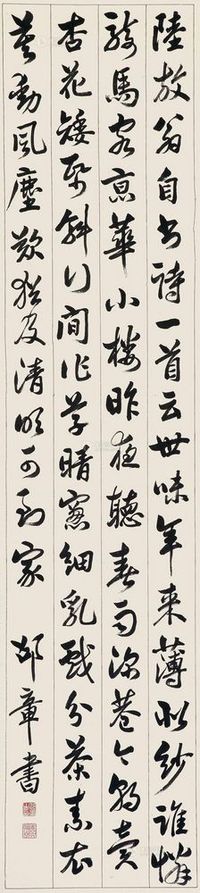 陸放翁自书詩一首云世味年来薄似紗誰憐
騎馬客京華小樓昨夜聽春雨深巷今朝賣
杏花矮紙斜行間作草晴窻細乳戲分茶素衣
莫動風塵歎猶及清明可到家 邵章書